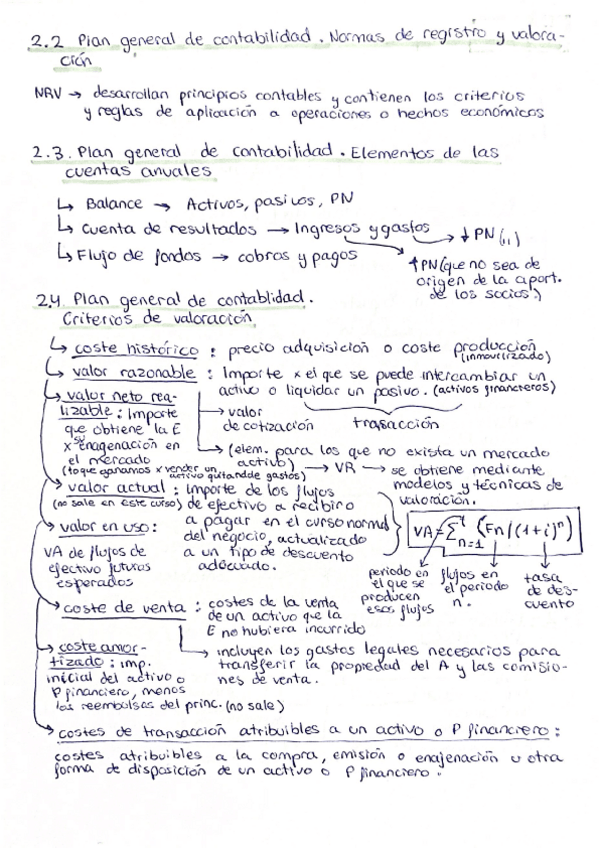 2.2 Plan general de contabilidad. Normas de registro y valora-
ción
NRV → desarrollan principios contables y contienen los criterios
y reglas de aplicación a operaciones o hechos económicos
2.3. Plan general de contabilidad. Elementos de las
cuentas anuales
↳ Balance → Activos, pasivos, PN
↳ Cuenta de resultados → Ingresos y gastos → ↓ PN (,,)
↳ Flujo de fondos → cobros y pagos
↑PN (que no sea de
origen de la aport.
de los socios.)
2.4. Plan general de contablidad.
Criterios de valoración
↳ coste histórico : precio adquisición o coste producción
(inmovilizado)
↳ valor razonable : Importe x el que se puede intercambiar un
activo o liquidar un pasivo. (activos financieros)
→ valor
de cotización
trasacción
→ (elem. para los que no exista un mercado
activo) → VR → se obtiene mediante
modelos y técnicas de
valoración.
↳ valor neto rea-
lizable : Importe
que obtiene la E
x su enagenación en
el mercado
(lo que ganamos x vender un
activo quitando de gastos)
↳ valor actual : Importe de los flujos
(no sale en este curso) de efectivo a recibir o
a pagar en el curso normal
del negocio, actualizado
a un tipo de descuento
adecuado.
VA = Σ t n=1 (Fn/(1+i)ⁿ)
periodo en
el que se
producen
esos flujos
flujos en
el periodo
n.
tasa
de des-
cuento
↳ valor en uso :
VA de flujos de
efectivo futuros
esperados
↳ coste de venta : costes de la venta
de un activo que la
E no hubiera incurrido
→ incluyen los gastos legales necesarios para
transferir la propiedad del A y las comisio-
nes de venta.
↳ coste amor-
tizado : imp.
inicial del activo o
P financiero, menos
los reembolsos del princ. (no sale)
↳ costes de transacción atribuibles a un activo o P financiero :
costes atribuibles a la compra, emisión o enajenación u otra
forma de disposición de un activo o P financiero.